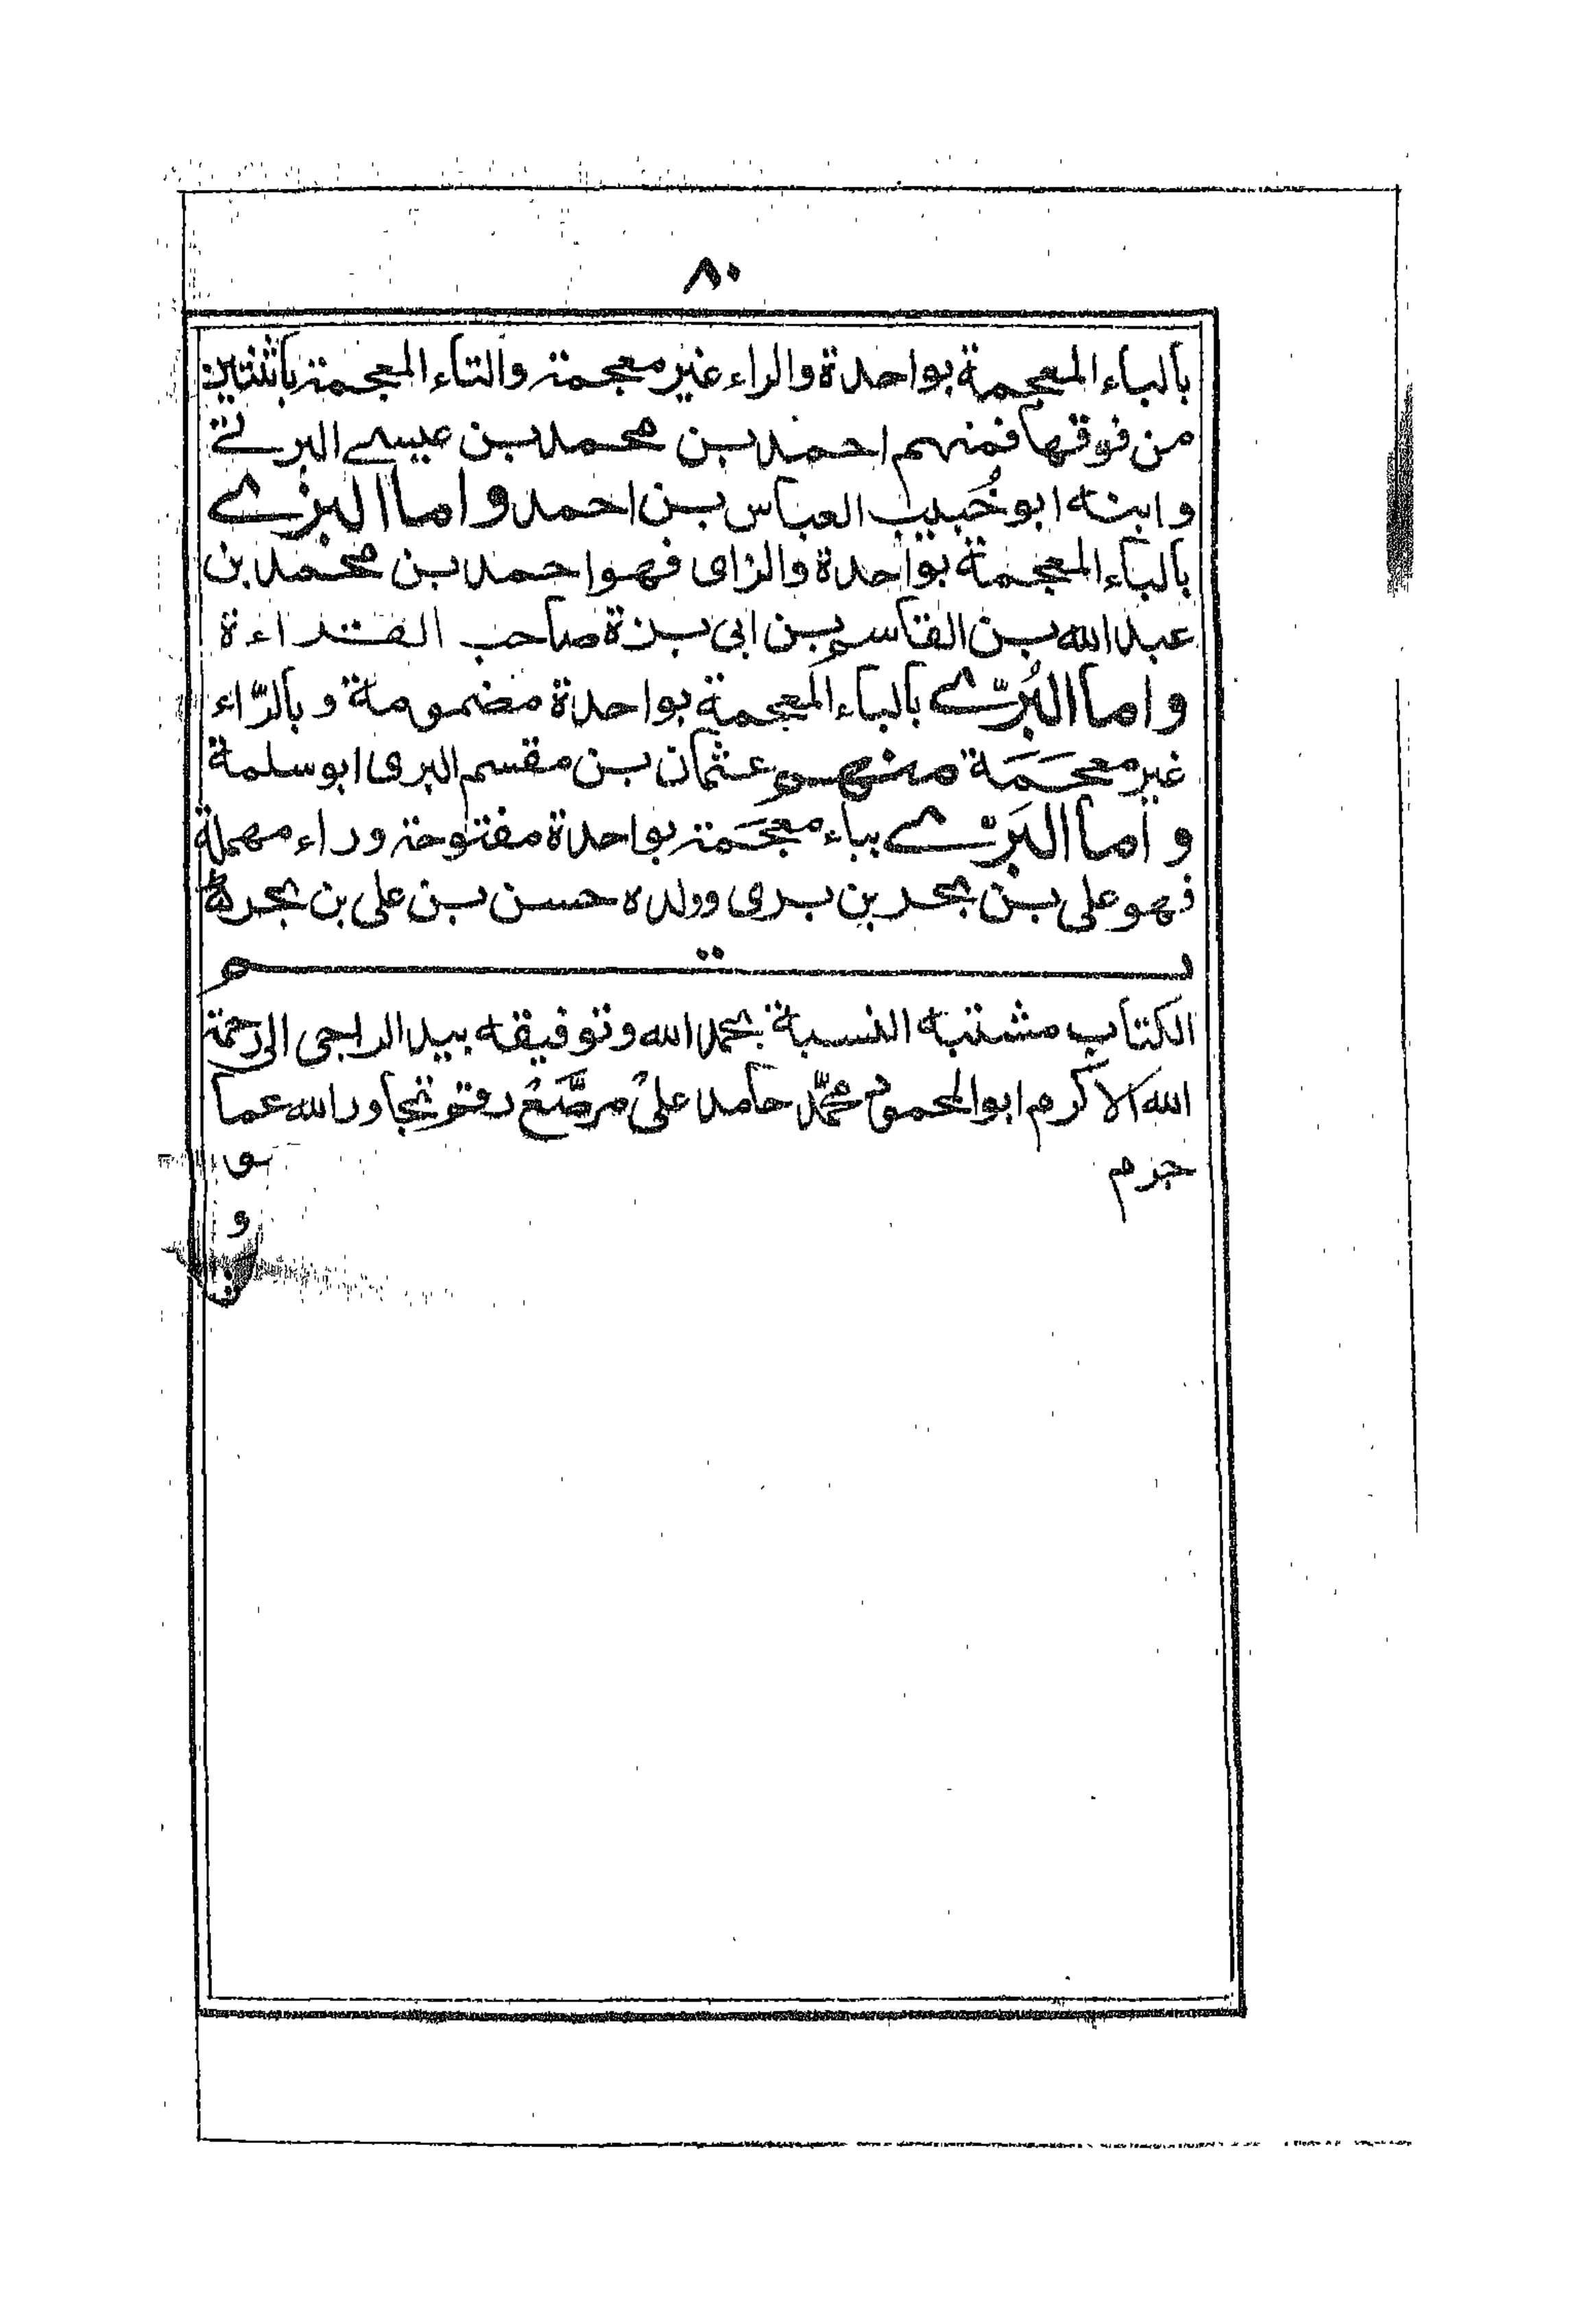 ٨٠
بالباء المعجمة بواحدة والراء غير معجمة والتاء المعجمة باثنتين
من فوقها فمنهم احمد بن محمد بن عيسى البرتي
وابنه ابو خُبيب العباس بن احمد واما البزي
بالباء المعجمة بواحدة والزاى فهو احمد بن محمد بن
عبد الله بن القاسم بن ابى بزة صاحب القراءة
واما البُرّي بالباء المعجمة بواحدة مضمومة وبالرّاء
غير معجَمَة منهم عثمان بن مقسم البرى ابو سلمة
واما البَرّي بباء معجَمة بواحدة مفتوحة وراء مهملة
فهو على بن بحر بن برى وولده حسن بن على بن بحر
تم
الكتاب مشتبه النسبة بحمد الله وتوفيقه بيد الراجى الى رحمة
الله الاكرم ابو المحمود محمّد حامد على مرصّع رقم تجاور الله عما
جرم